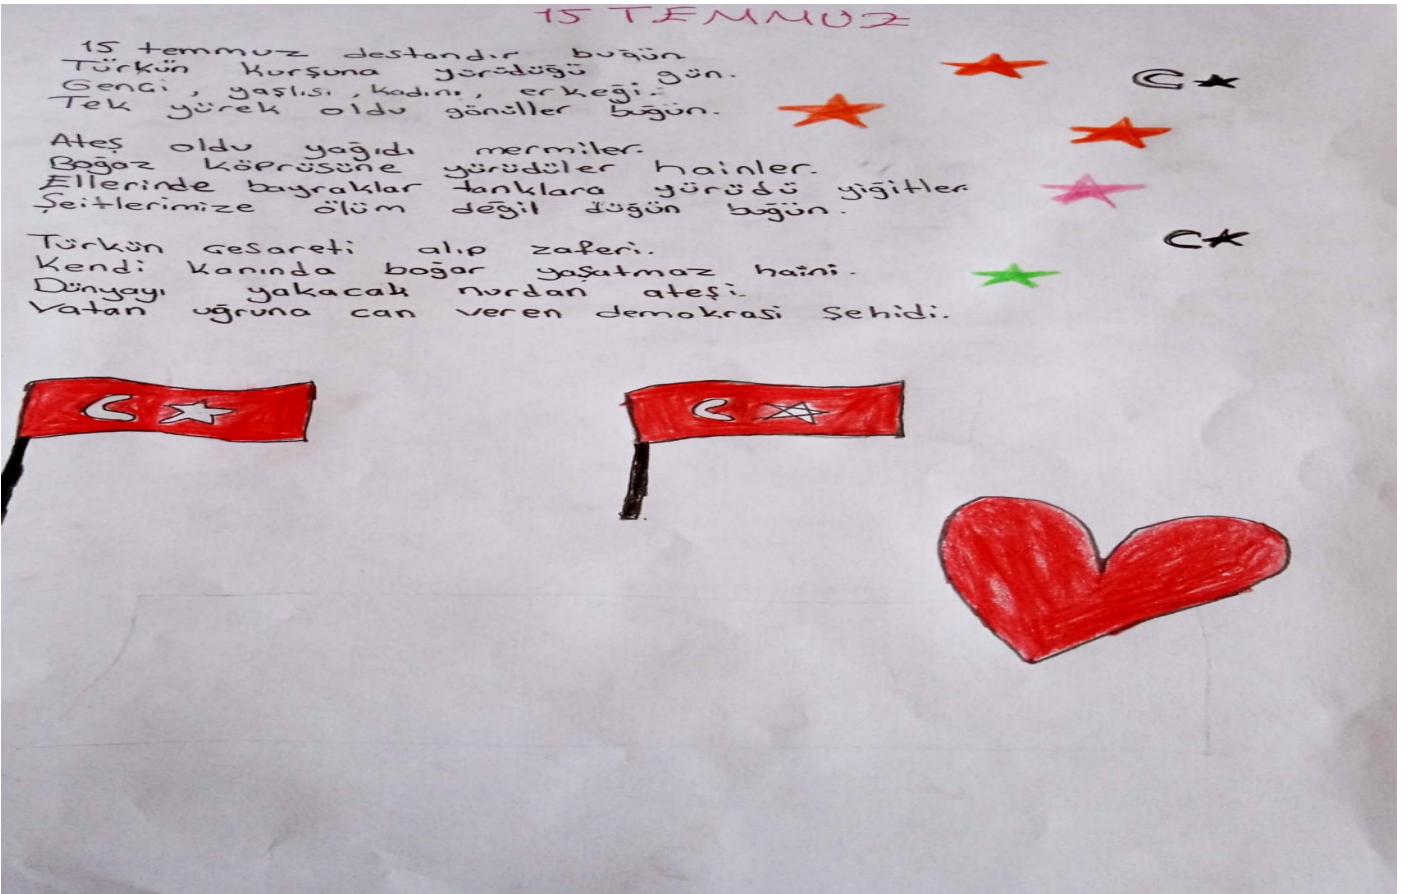 15 TEMMUZ
15 temmuz destandır buğün
Türkün kurşuna yürüdüğü gün.
Genci, yaşlısı, kadını, erkeği.
Tek yürek oldu gönüller buğün.
Ateş oldu yağıdı mermiler.
Boğaz köprüsüne yürüdüler hainler.
Ellerinde bayraklar tanklara yürüdü yiğitler
Şeitlerimize ölüm değil düğün buğün.
Türkün cesareti alıp zaferi.
Kendi kanında boğar yaşatmaz haini.
Dünyayı yakacak nurdan ateşi.
Vatan uğruna can veren demokrasi şehidi.